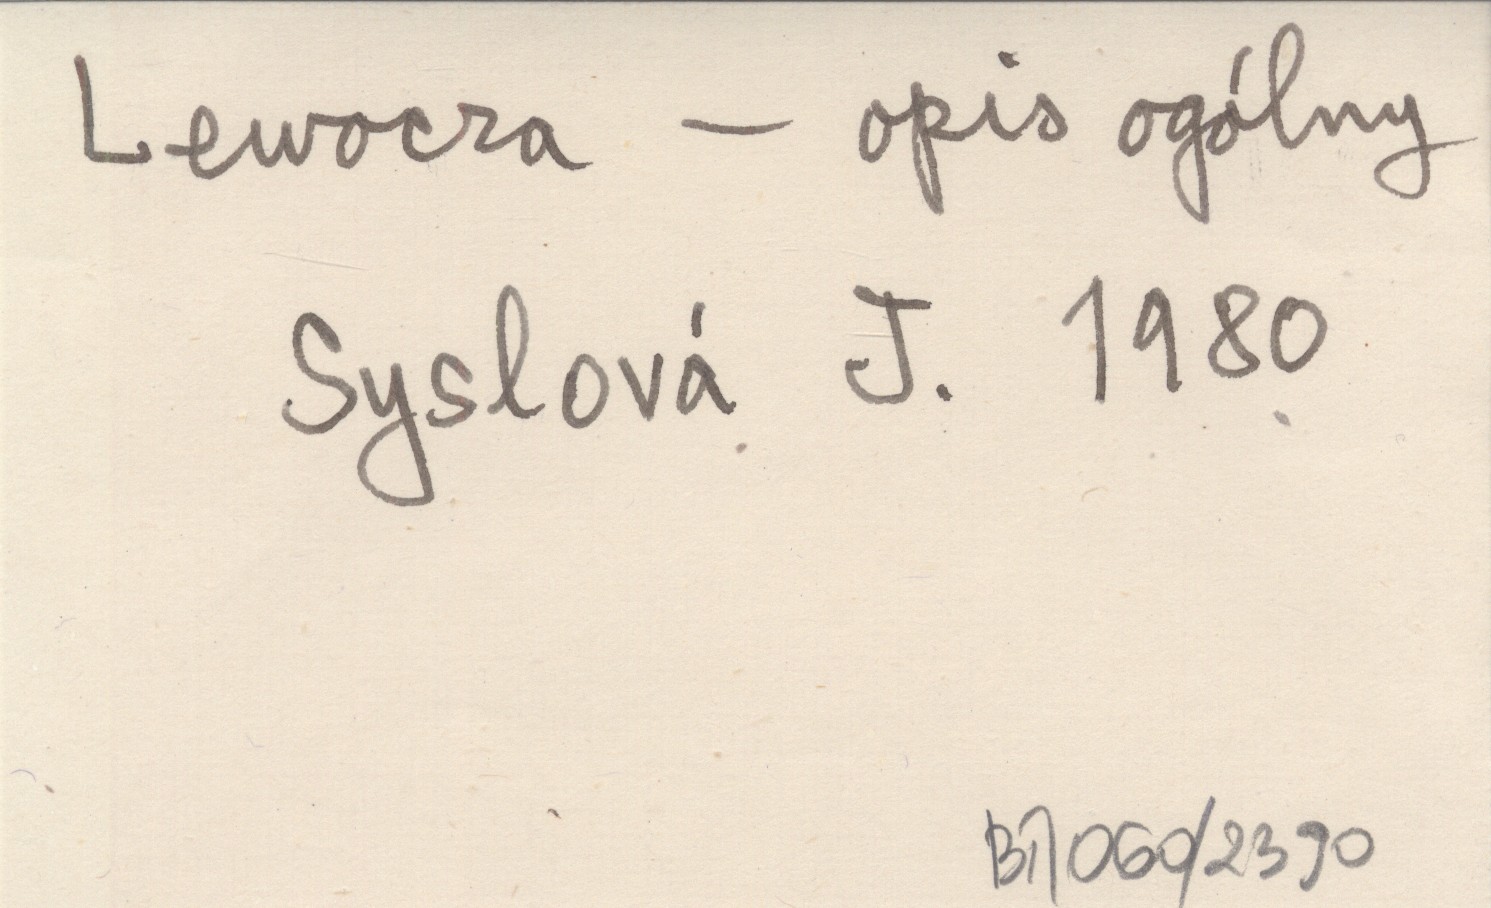 Lewocza — opis ogólny
Syslová J. 1980
B1/060/2390